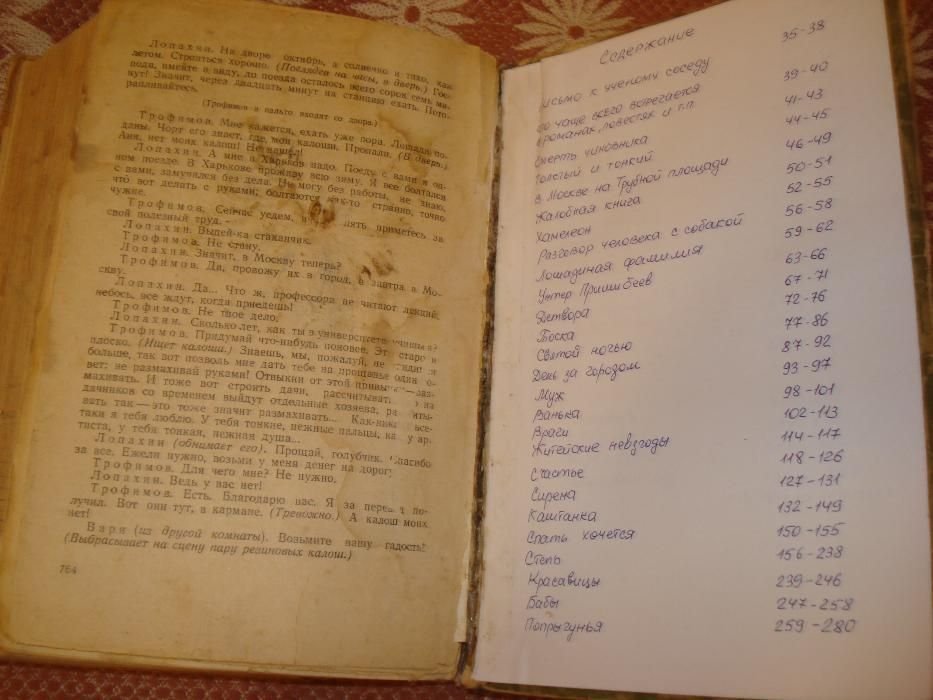 Лопахин. На дворе октябрь, а солнечно и тихо, как
летом. Строиться хорошо. (Поглядев на часы, в дверь.) Гос-
пода, имейте в виду, до поезда осталось всего сорок семь ми-
нут! Значит, через двадцать минут на станцию ехать. Пото-
рапливайтесь.
(Трофимов в пальто входит со двора.)
Трофимов. Мне кажется, ехать уже пора. Лошади по-
даны. Чорт его знает, где мои калоши. Пропали. (В дверь.)
Аня, нет моих калош! Не нашёл!
Лопахин. А мне в Харьков надо. Поеду с вами в од-
ном поезде. В Харькове проживу всю зиму. Я все болтался
с вами, замучился без дела. Не могу без работы, не знаю,
что вот делать с руками; болтаются как-то странно, точно
чужие.
Трофимов. Сейчас уедем, и вы опять приметесь за
свой полезный труд.
Лопахин. Выпей-ка стаканчик.
Трофимов. Не стану.
Лопахин. Значит, в Москву теперь?
Трофимов. Да, провожу их в город, а завтра в Мо-
скву.
Лопахин. Да... Что ж, профессора не читают лекций,
небось, все ждут, когда приедешь!
Трофимов. Не твое дело.
Лопахин. Сколько лет, как ты в университете учишься?
Трофимов. Придумай что-нибудь поновее. Это старо и
плоско. (Ищет калоши.) Знаешь, мы, пожалуй, не увидимся
больше, так вот позволь мне дать тебе на прощанье один со-
вет: не размахивай руками! Отвыкни от этой привычки — раз-
махивать. И тоже вот строить дачи, рассчитывать, что из
дачников со временем выйдут отдельные хозяева, рассчиты-
вать так — это тоже значит размахивать... Как-никак, все-
таки я тебя люблю. У тебя тонкие, нежные пальцы, как у ар-
тиста, у тебя тонкая, нежная душа...
Лопахин (обнимает его). Прощай, голубчик. Спасибо
за все. Ежели нужно, возьми у меня денег на дорогу.
Трофимов. Для чего мне? Не нужно.
Лопахин. Ведь у вас нет!
Трофимов. Есть. Благодарю вас. Я за перевод по-
лучил. Вот они тут, в кармане. (Тревожно.) А калош моих
нет!
Варя (из другой комнаты). Возьмите вашу гадость!
(Выбрасывает на сцену пару резиновых калош.)
764
Содержание
исьмо к ученому соседу 35-38
о чаще всего встречается
романах, повестях и т.п. 39-40
Смерть чиновника 41-43
Толстый и тонкий 44-45
в Москве на Трубной площади 46-49
Жалобная книга 50-51
Хамелеон 52-55
Разговор человека с собакой 56-58
Лошадиная фамилия 59-62
Унтер Пришибеев 63-66
Детвора 67-71
Тоска 72-76
Святой ночью 77-86
День за городом 87-92
Муж 93-97
Ванька 98-101
Враги 102-113
Житейские невзгоды 114-117
Счастье 118-126
Сирена 127-131
Каштанка 132-149
Спать хочется 150-155
Степь 156-238
Красавицы 239-246
Бабы 247-258
Попрыгунья 259-280